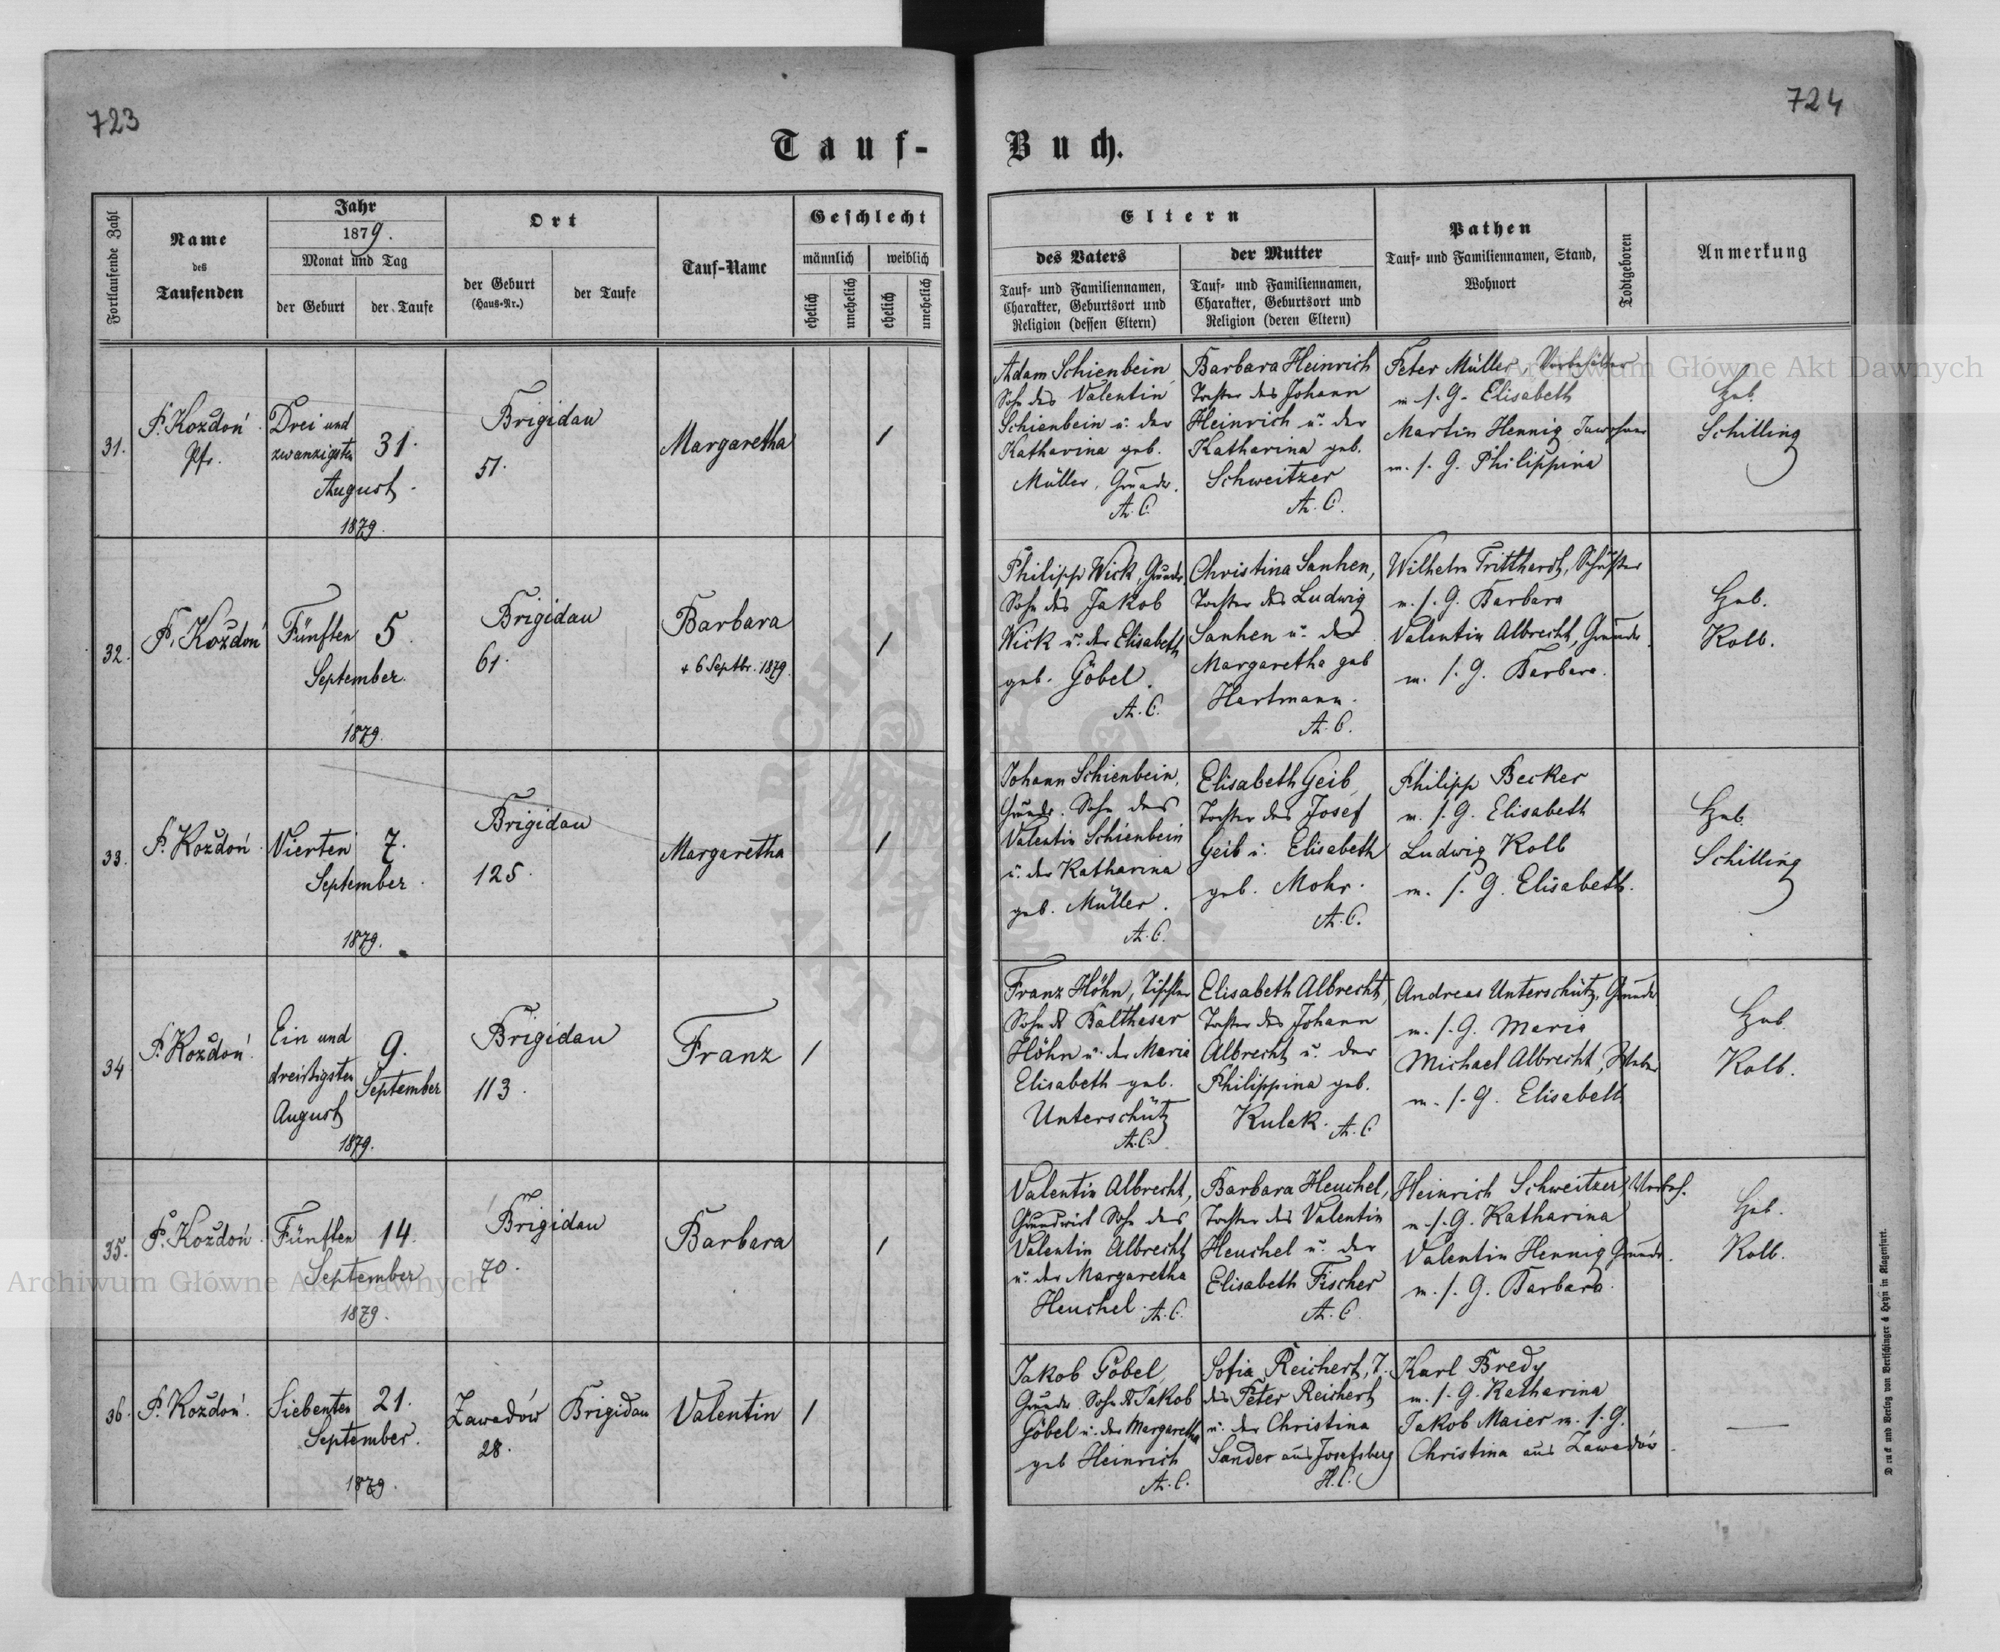 723
724
Tauf-
Buch.
Fortlaufende Zahl
Name
des
Taufenden
Jahr
1879.
Monat und Tag
der Geburt
der Taufe
Ort
der Geburt
(Haus-Nr.)
der Taufe
Tauf-Name
Geschlecht
männlich
weiblich
ehelich
unehelich
ehelich
unehelich
Eltern
des Vaters
Tauf- und Familiennamen,
Charakter, Geburtsort und
Religion (dessen Eltern)
der Mutter
Tauf- und Familiennamen,
Charakter, Geburtsort und
Religion (deren Eltern)
Pathen
Tauf- und Familiennamen, Stand,
Wohnort
Todtgeboren
Anmerkung
31.
P. Kozdoń
Pfr.
Drei und
zwanzigsten
August
1879.
31.
Brigidau
51.
Margaretha
/
Adam Schienbein
Sohn des Valentin
Schienbein u. der
Katharina geb.
Müller, Grundw.
A. C.
Barbara Heinrich
Tochter des Johann
Heinrich u. der
Katharina geb.
Schweitzer
A. C.
Peter Müller
m. s. G. Elisabeth
Martin Hennig Inwohner
m. s. G. Philippina
Heb.
Schilling
32.
P. Kozdoń
Fünften
September
1879.
5.
Brigidau
61.
Barbara
+ 6 Septbr. 1879.
/
Philipp Wick, Grundw.
Sohn des Jakob
Wick u. der Elisabeth
geb. Göbel.
A. C.
Christina Sanhen,
Tochter des Ludwig
Sanhen u. der
Margaretha geb
Hartmann.
A. C.
Wilhelm Tritthardt, Schuster
m. s. G. Barbara
Valentin Albrecht, Grundw.
m. s. G. Barbara.
Heb.
Kolb.
33.
P. Kozdoń.
Vierten
September.
1879.
7.
Brigidau
125.
Margaretha
/
Johann Schienbein,
Grundw. Sohn des
Valentin Schienbein
u. der Katharina
geb. Müller.
A. C.
Elisabeth Geib,
Tochter des Josef
Geib u. Elisabeth
geb. Mohr.
A. C.
Philipp Becker
m. s. G. Elisabeth
Ludwig Kolb
m. s. G. Elisabeth.
Heb.
Schilling
34
P. Kozdoń.
Ein und
dreißigsten
August
1879.
9.
September
Brigidau
113.
Franz
/
Franz Höhn, Tischler
Sohn d. Balthasar
Höhn u. der Maria
Elisabeth geb.
Unterschütz
A. C.
Elisabeth Albrecht,
Tochter des Johann
Albrecht u. der
Philippina geb.
Kulek. A. C.
Andreas Unterschütz, Grundw
m. s. G. Maria
Michael Albrecht, Weber
m. s. G. Elisabeth
Heb
Kolb.
35.
P. Kozdoń.
Fünften
September
1879.
14.
Brigidau
70.
Barbara
/
Valentin Albrecht,
Grundwirt Sohn des
Valentin Albrecht
u. der Margaretha
Heuchel. A. C.
Barbara Heuchel,
Tochter des Valentin
Heuchel u. der
Elisabeth Fischer
A. C.
Heinrich Schweitzer, Vorbeh.
m. s. G. Katharina
Valentin Hennig Grundw.
m. s. G. Barbara.
Heb.
Kolb.
36.
P. Kozdoń.
Siebenten
September.
1879.
21.
Zawadów
28.
Brigidau
Valentin
/
Jakob Göbel,
Grundw. Sohn d. Jakob
Göbel u. der Margaretha
geb Heinrich
A. C.
Sofia Reichert, T.
des Peter Reichert
u. der Christina
Sander aus Josefsberg
H. C.
Karl Bredy
m. s. G. Katharina
Jakob Maier m. s. G.
Christina aus Zawadów.
—
Druck und Verlag von Bertschinger & Heyn in Klagenfurt.
Archiwum Główne Akt Dawnych
Archiwum Główne Akt Dawnych